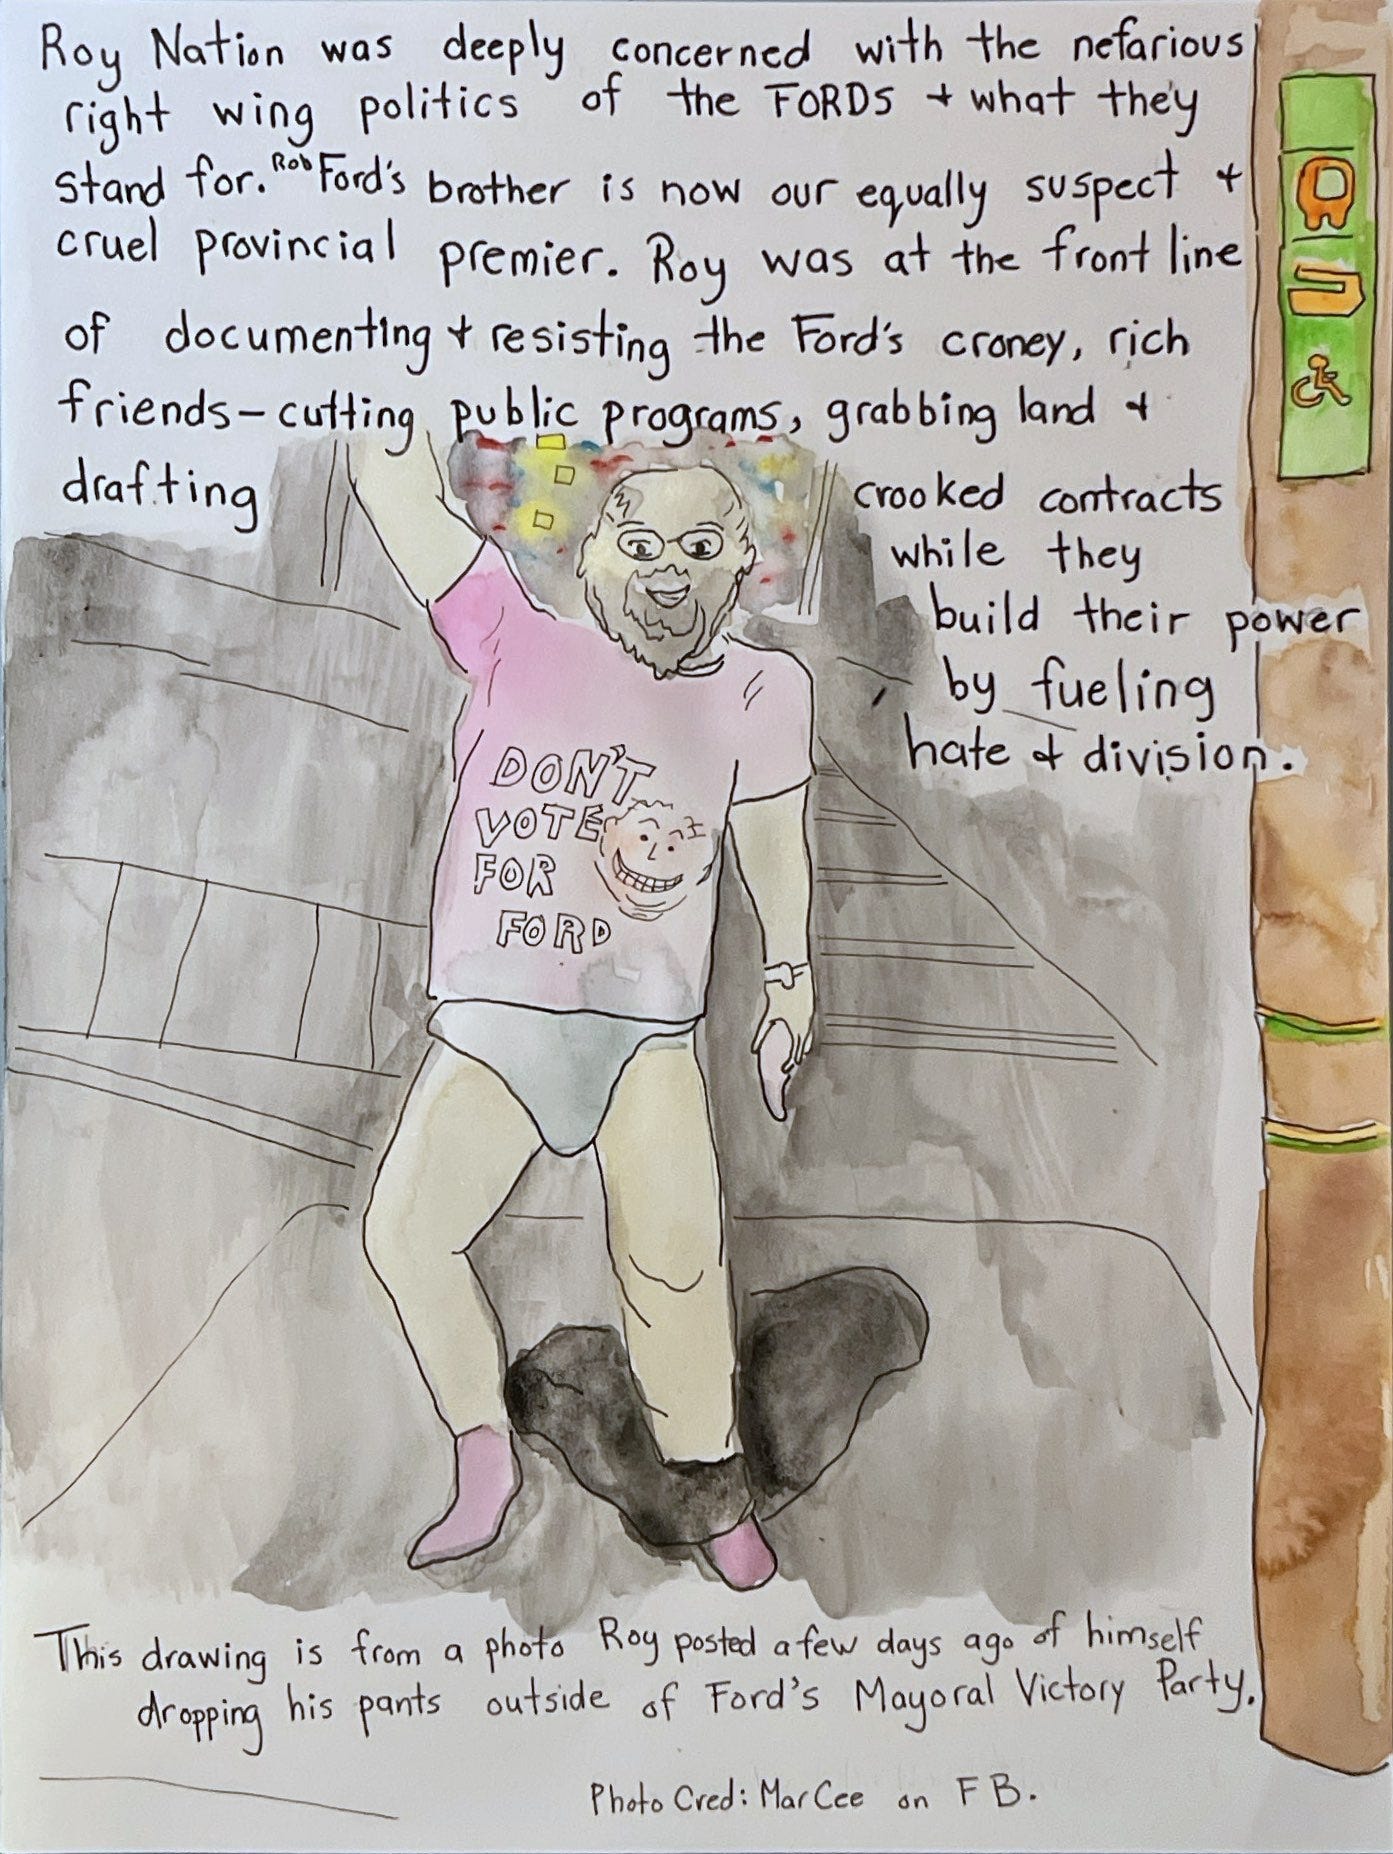 Roy Nation was deeply concerned with the nefarious
right wing politics of the FORDS + what they
stand for. Rob Ford's brother is now our equally suspect +
cruel provincial premier. Roy was at the front line
of documenting + resisting the Ford's croney, rich
friends–cutting public programs, grabbing land +
drafting crooked contracts
while they
build their power
by fueling
hate + division.
DON'T
VOTE
FOR
FORD
This drawing is from a photo Roy posted a few days ago of himself
dropping his pants outside of Ford's Mayoral Victory Party.
Photo Cred: Mar Cee on FB.